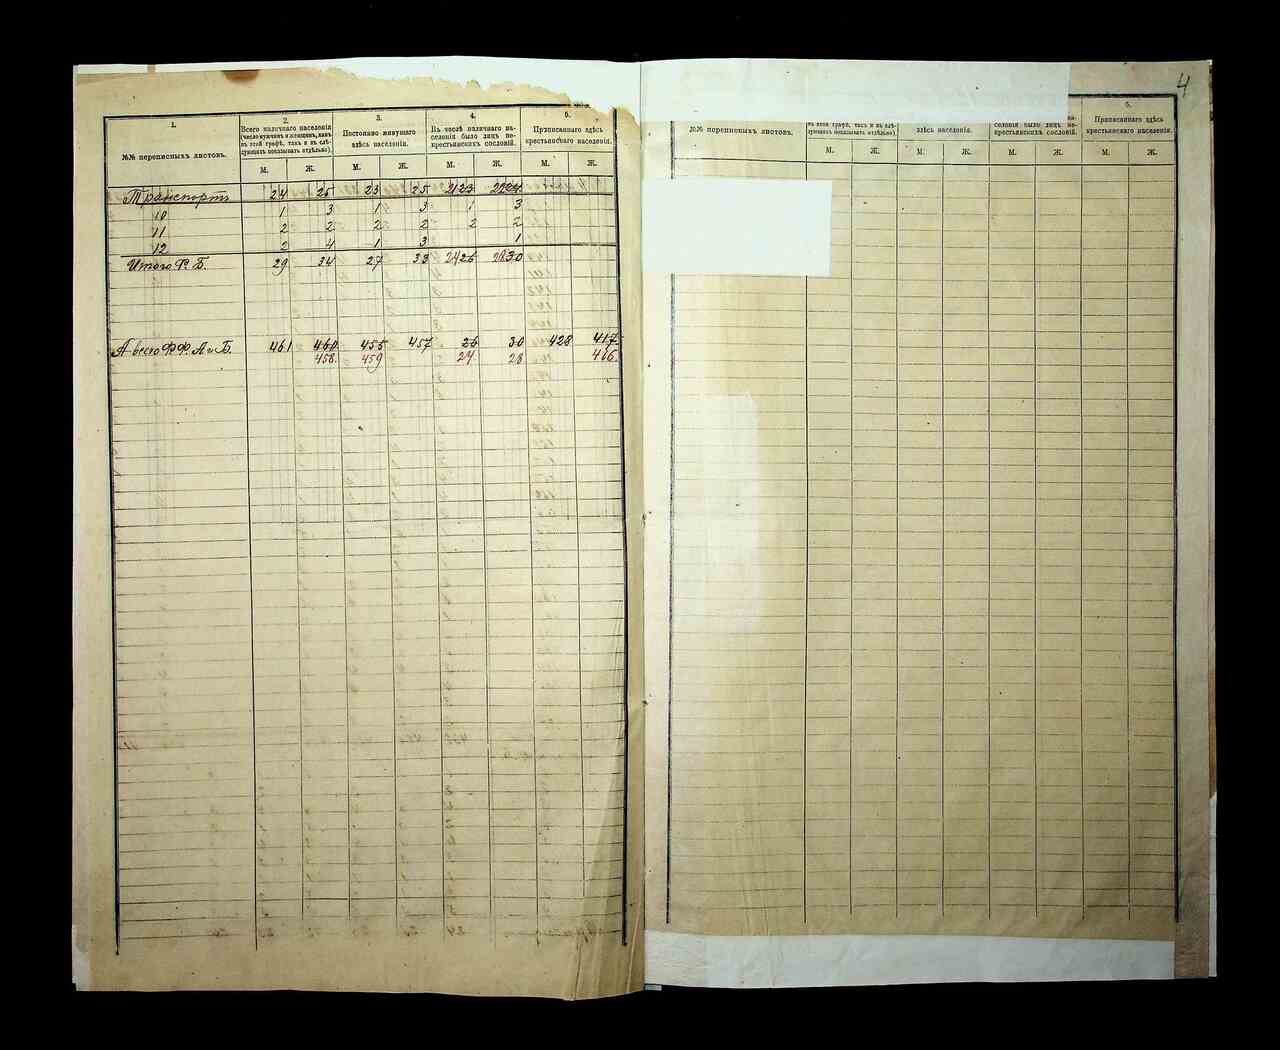 1.
№№ переписныхъ листовъ.
2.
Всего наличнаго населенія
(число мужчинъ и женщинъ, какъ
въ этой графѣ, такъ и въ слѣ-
дующихъ показывать отдѣльно).
М. Ж.
3.
Постоянно живущаго
здѣсь населенія.
М. Ж.
4.
Въ числѣ наличнаго на-
селенія было лицъ не-
крестьянскихъ сословій.
М. Ж.
5.
Приписаннаго здѣсь
крестьянскаго населенія.
М. Ж.
Транспортъ 24 25 23 25 23
10 1 3 1 3 1 3
11 2 2 2 2 2 2
12 2 4 1 3 1
Итого Ф. Б. 29 34 27 33 26 30
А всего Ф.Ф. А и Б. 461 460 455 457 26 30 428 417
458. 459 24 28 416.
4
№№ переписныхъ листовъ.
въ этой графѣ, такъ и въ слѣ-
дующихъ показывать отдѣльно).
М. Ж.
здѣсь населенія.
М. Ж.
на-
селенія было лицъ не-
крестьянскихъ сословій.
М. Ж.
5.
Приписаннаго здѣсь
крестьянскаго населенія.
М. Ж.